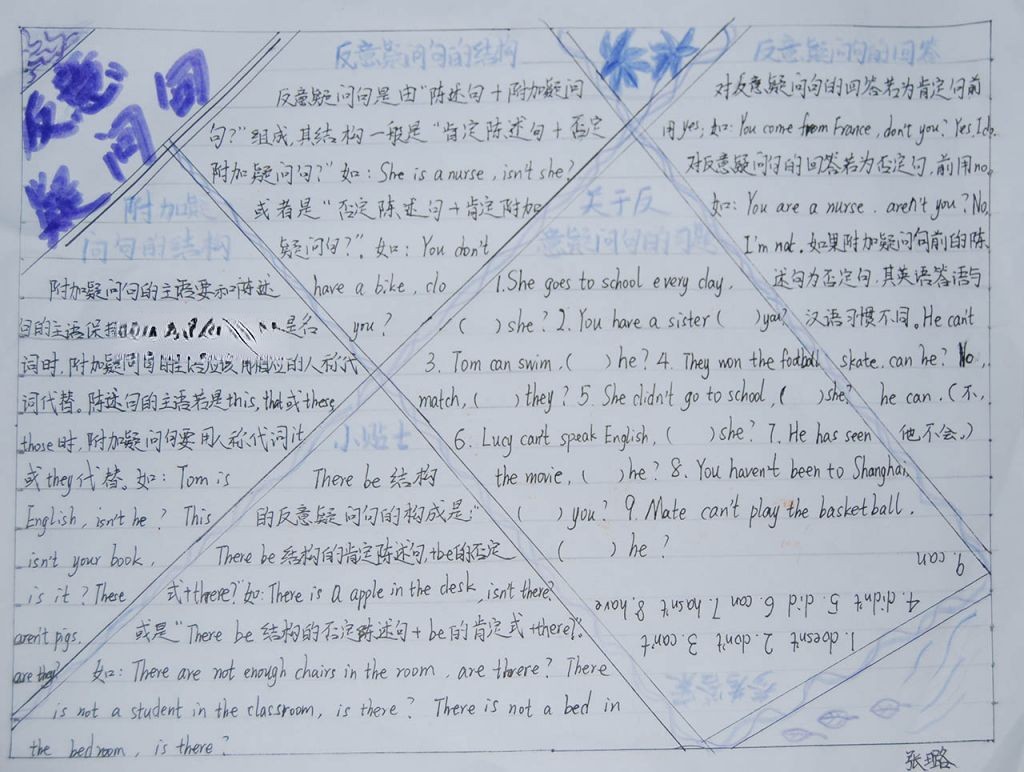 反意疑问句
反意疑问句的结构
反意疑问句是由"陈述句+附加疑问
句?"组成,其结构一般是"肯定陈述句+否定
附加疑问句?"如:She is a nurse, isn't she?
或者是"否定陈述句+肯定附加
疑问句?".如:You don't
have a bike, do
you?
反意疑问句的回答
对反意疑问句的回答若为肯定句前
用yes,如:You come from France, don't you? Yes I do.
对反意疑问句的回答若为否定句,前用no,
如:You are a nurse. aren't you? No,
I'm not.如果附加疑问句前的陈
述句为否定句,其英语答语与
汉语习惯不同。He can't
skate. can he? No,
he can.(不,
他不会。)
附加疑
问句的结构
附加疑问句的主语要和陈述
句的主语保 是名
词时,附加疑问句的主语应该用相应的人称代
词代替。陈述句的主语若是this, that或these,
those时,附加疑问句要用人称代词it
或they代替。如:Tom is
English, isn't he? This
isn't your book,
is it? These
aren't pigs.
are they?
关于反
意疑问句的习题
1.She goes to school every day,
( ) she? 2. You have a sister ( ) you?
3. Tom can swim, ( ) he? 4. They won the football
match, ( ) they? 5. She didn't go to school, ( ) she?
6. Lucy can't speak English, ( ) she? 7. He has seen
the movie, ( ) he? 8. You haven't been to Shanghai,
( ) you? 9. Mate can't play the basketball.
( ) he?
小贴士
There be 结构
的反意疑问句的构成是:"
There be 结构的肯定陈述句,+be的否定
式+there?"如:There is a apple in the desk, isn't there?
或是"There be 结构的否定陈述句+be的肯定式+there?".
如:There are not enough chairs in the room, are there? There
is not a student in the classroom, is there? There is not a bed in
the bedroom, is there?
参考答案
1. doesn't 2. don't 3. can't
4. didn't 5. did 6. can 7. hasn't 8. have
9. can
张璐